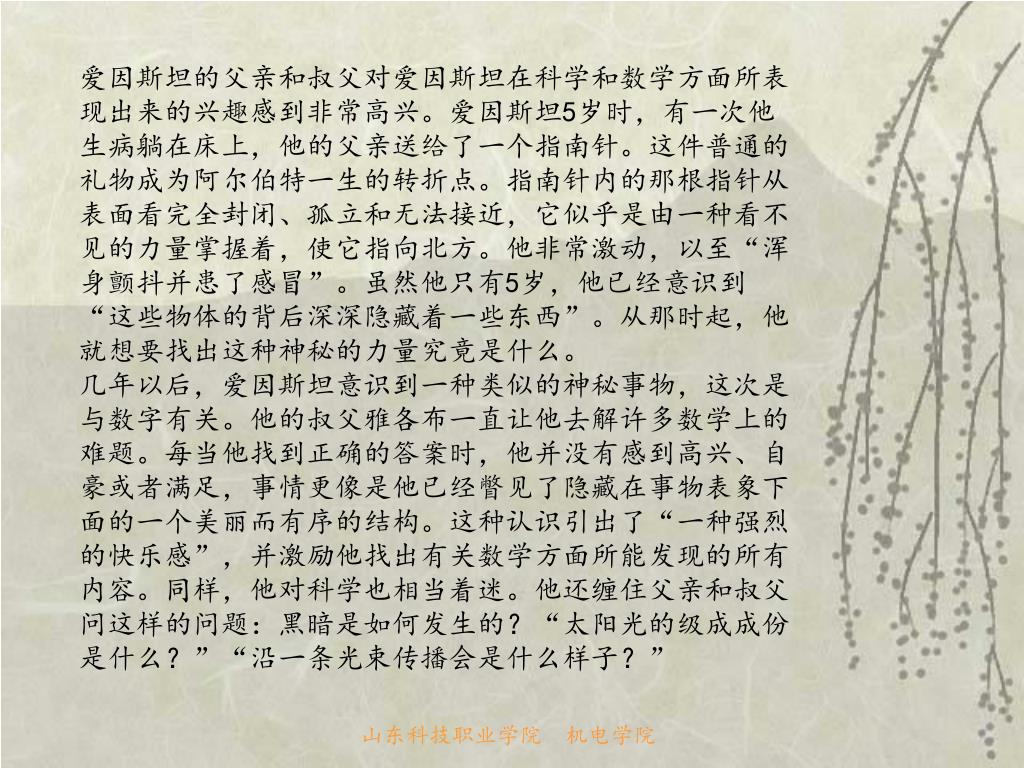 爱因斯坦的父亲和叔父对爱因斯坦在科学和数学方面所表
现出来的兴趣感到非常高兴。爱因斯坦5岁时，有一次他
生病躺在床上，他的父亲送给了一个指南针。这件普通的
礼物成为阿尔伯特一生的转折点。指南针内的那根指针从
表面看完全封闭、孤立和无法接近，它似乎是由一种看不
见的力量掌握着，使它指向北方。他非常激动，以至“浑
身颤抖并患了感冒”。虽然他只有5岁，他已经意识到
“这些物体的背后深深隐藏着一些东西”。从那时起，他
就想要找出这种神秘的力量究竟是什么。
几年以后，爱因斯坦意识到一种类似的神秘事物，这次是
与数字有关。他的叔父雅各布一直让他去解许多数学上的
难题。每当他找到正确的答案时，他并没有感到高兴、自
豪或者满足，事情更像是他已经瞥见了隐藏在事物表象下
面的一个美丽而有序的结构。这种认识引出了“一种强烈
的快乐感”，并激励他找出有关数学方面所能发现的所有
内容。同样，他对科学也相当着迷。他还缠住父亲和叔父
问这样的问题：黑暗是如何发生的？“太阳光的级成成份
是什么？”“沿一条光束传播会是什么样子？”
山东科技职业学院 机电学院